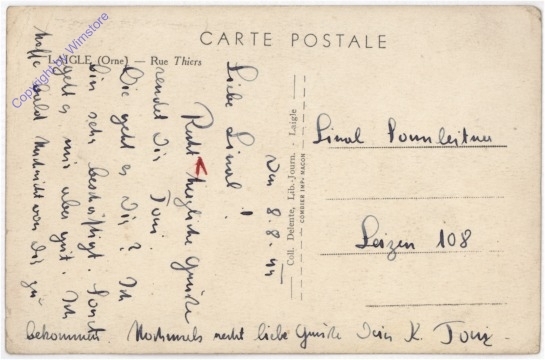 CARTE POSTALE
LAIGLE (Orne) — Rue Thiers
Copyright by Winstore
Coll. Delente, Lib.-Journ. - Laigle
COMBIER IMP. MACON
den 8.8.44
Liebe Linal!
Recht herzliche Grüße
sendet Dir Toni.
Wie geht es Dir? Ich
bin sehr beschäftigt. Sonst
geht es mir aber gut. Ich
hoffe bald Nachricht von Dir zu
bekommen. Nochmals recht liebe Grüße Dein K. Toni.
Linal
Liezen 108